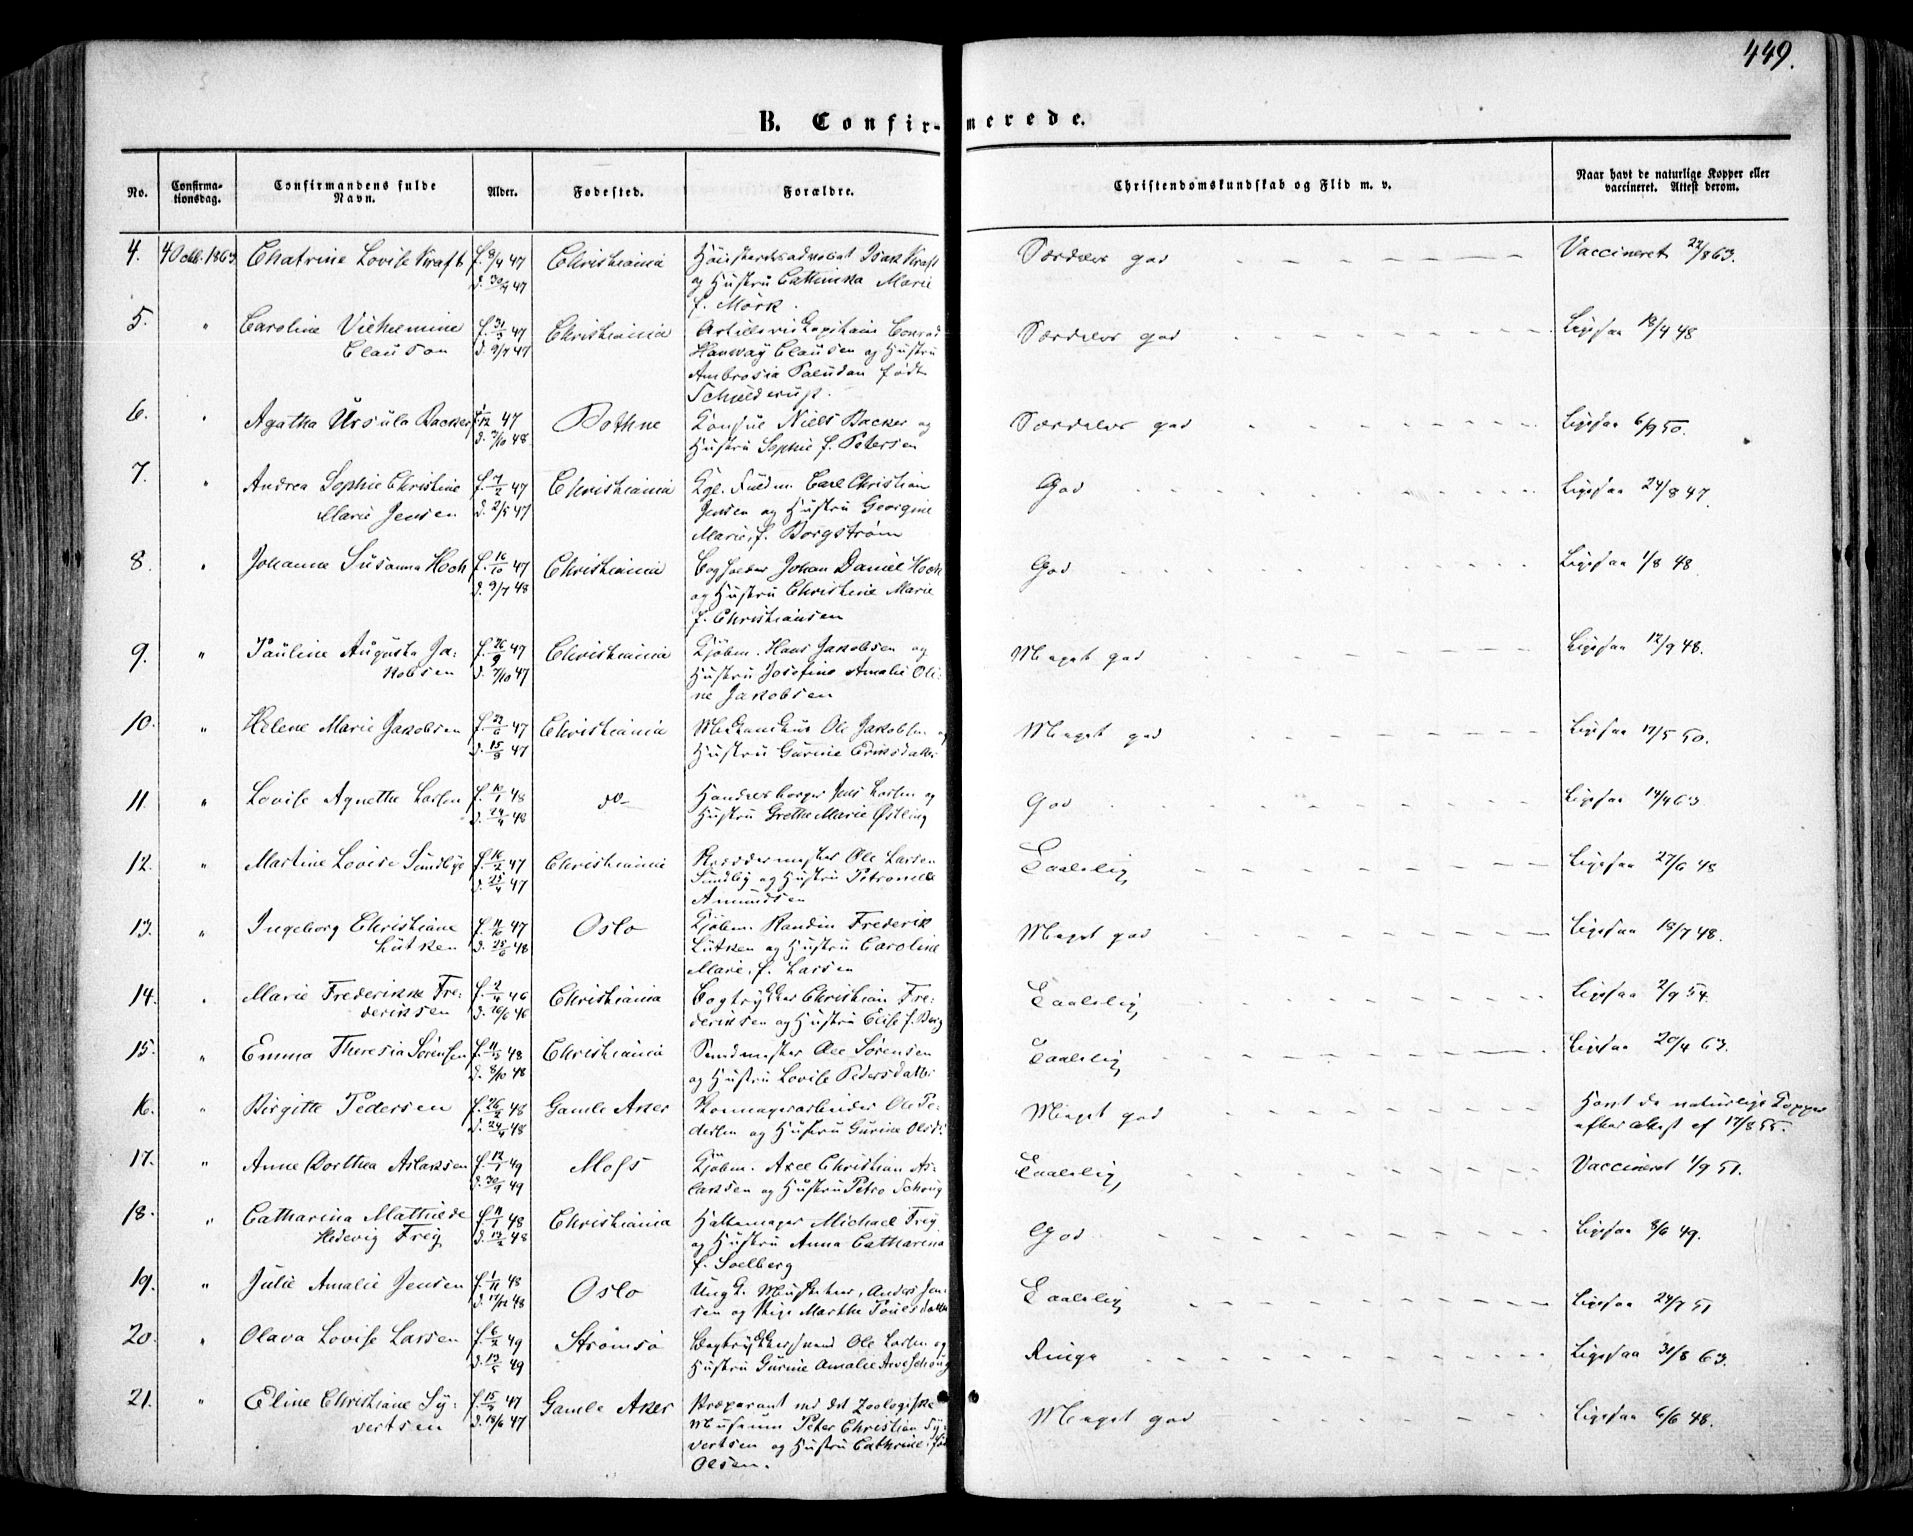 449.
B. Confirmerede.
No. Confirmationsdag. Confirmandens fulde Navn. Alder. Fødested. Forældre. Christendomskundskab og Flid m. v. Naar havt de naturlige Kopper eller vaccineret. Attest derom.
4. 4 Octb. 1863. Chatrine Lovise Kraft f. 8/4 47 Christiania Høiesteretsadvokat Isak Kraft Særdeles god Vaccineret 22/8 63.
d. 30/9 47 og Hustru Cathinka Marie
f. Mørk.
5. " Caroline Vilhelmine f. 31/3 47 Christiania Artilleriekapitain Conrad Særdeles god Ligesaa 18/4 48
Clauson d. 9/7 47 Clausen og Hustru
Ambrosia Paludan født
6. " Agatha Ursula Backer f. 1/12 47 Bothne Konsul Niels Backer og Særdeles god Ligesaa 6/9 50.
d. 7/10 48 Hustru Sophie f. Petersen
7. " Andrea Sophie Christine f. 7/2 47 Christiania Kgl. Fuldm. Carl Christian God Ligesaa 24/8 47.
Marie Jensen d. 2/5 47 Jensen og Hustru Georgine
Marie, f. Borgstrøm
8. " Johanne Susanna Hoch f. 16/10 47 Christiania Bogholder Johan Daniel Hoch God Ligesaa 1/8 48
d. 9/7 48 og Hustru Christine Marie
f. Christiansen
9. " Pauline Augusta Ja- f. 26/9 47 Christiania Kjøbm. Hans Jakobsen og Meget god Ligesaa 12/9 48.
kobsen d. 7/10 47 Hustru Josefine Amalie Oli-
ne Jakobsen
10. " Helene Marie Jakobsen f. 22/6 47 Christiania Mechanikus Ole Jakobsen og Meget god Ligesaa 17/5 50.
d. 15/9 47 Hustru Gurine Eriksdatter
11. " Lovise Agnethe Larsen f. 10/1 48 do Handelsborger Jens Larsen og God Ligesaa 14/4 63.
d. 24/4 48 Hustru Grethe Marie Østling
12. " Martine Lovise Sundbye f. 16/2 47 Christiania Ole Larsen Taalelig, Ligesaa 27/6 48
d. 25/4 47 Sundby og Hustru Petronelle
Amundsen
13. " Ingeborg Christiane f. 11/10 47 Oslo Kjøbm. Frederik Meget god Ligesaa 18/7 48.
Lütken d. 25/6 48 Lütken og Hustru Caroline
Marie, f. Larsen
14. " Marie Frederikke Fre- f. 2/4 46 Christiania Bogtrykker Christian Fre- Taalelig, Ligesaa 2/9 54.
deriksen d. 16/6 46 deriksen og Hustru Elise f. Berg
15. " Emma Theresia Sørensen f. 11/5 48 Christiania Ole Sørensen Taalelig, Ligesaa 20/4 63.
d. 8/10 48 og Hustru Lovise Pedersdatter
16. " Birgitte Pedersen f. 26/2 48 Gamle Aker Ole Pe- Meget god Havt de naturlige Kopper
d. 24/4 48 dersen og Hustru Gurine Olsd. efter Attest af 17/8 55.
17. " Anne Dorthea Aslaksen f. 12/1 49 Moss Kjøbm. Axel Christian As- Taalelig, Vaccineret 1/9 51.
d. 30/9 49 laksen og Hustru Petro Schoug
18. " Catharina Mathilde f. 11/1 48 Christiania Hattemager Michael Frey God Ligesaa 8/6 49.
Hedevig Frey d. 13/2 48 og Hustru Anna Catharina
f. Soelberg
19. " Julie Amalie Jensen f. 1/11 48 Oslo Ungk. Anders Jen- Taalelig Ligesaa 24/7 51
d. 17/12 48 sen og Pige Marthe Poulsdatter
20. " Olava Lovise Larsen f. 6/2 49 Strømsø Bogtrykkersvend Ole Larsen og Ringe Ligesaa 31/8 63.
d. 13/5 49 Hustru Gurine Amalie Arveschoug
21. " Eline Christiane Sy- f. 15/3 47 Gamle Aker Præparant ved det Zoologiske Meget god Ligesaa 6/6 48.
vertsen d. 13/6 47 Museum Peter Christian Sy-
vertsen og Hustru Cathrine, fød
Olsen.